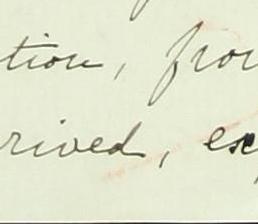 tion, fro
rived, ex